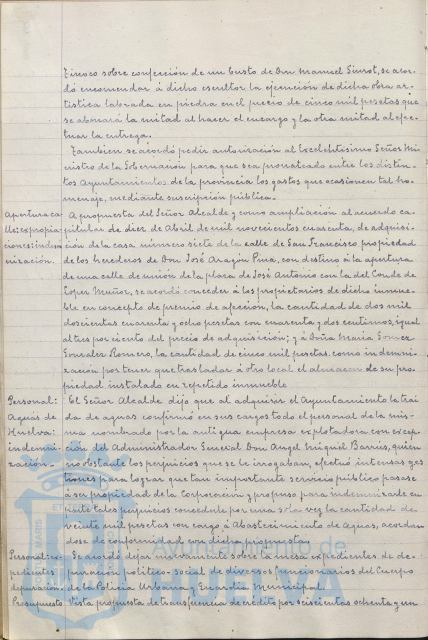 Tinoco sobre confección de un busto de Don Manuel Siurot, se acor-
dó encomendar á dicho escultor la ejecución de dicha obra ar-
tística labrada en piedra en el precio de cinco mil pesetas que
se abonará la mitad al hacer el encargo y la otra mitad al efec-
tuar la entrega.
También se acordó pedir autorización al Excelentísimo Señor Mi-
nistro de la Gobernación para que sea prorrateado entre los distin-
tos Ayuntamientos de la provincia los gastos que ocasionen tal ho-
menaje, mediante suscripción pública.
Apertura ca-
lle: expropia-
ciones: indem-
nización.
A propuesta del Señor Alcalde y como ampliación al acuerdo ca-
pitular de diez de Abril de mil novecientos cuarenta, de adquisi-
ción de la casa número siete de la calle de San Francisco propiedad
de los herederos de Don José Aragón Pina, con destino á la apertura
de una calle de unión de la plaza de José Antonio con la del Conde de
López Muñoz, se acordó conceder á los propietarios de dicho inmue-
ble en concepto de premio de afección, la cantidad de dos mil
doscientas cuarenta y ocho pesetas con cuarenta y dos centimos, igual
al tres por ciento del precio de adquisición; y á Doña María Gómez
González Romero, la cantidad de cinco mil pesetas como indemni-
zación por tener que trasladar á otro local el almacén de su pro-
piedad instalado en repetido inmueble
Personal:
Aguas de
Huelva:
indemni-
zación.
El Señor Alcalde dijo que al adquirir el Ayuntamiento la traí-
da de aguas confirmó en sus cargos todo el personal de la mis-
ma nombrado por la antigua empresa explotadora con excep-
ción del Administrador General Don Angel Miguel Barrios, quien
no obstante los perjuicios que se le irrogaban, efectuó intensas ges-
tiones para lograr que tan importante servicio público pasase
á ser propiedad de la Corporación y propuso para indemnizarle en
parte tales perjuicios concederle por una sola vez la cantidad de
veinte mil pesetas con cargo á Abastecimiento de Aguas, acordan
dose de conformidad con dicha propuesta.
Personal: ex-
pedientes
depuración.
Se acordó dejar nuevamente sobre la mesa expedientes de de-
puración político-social de diversos funcionarios del Cuerpo
de la Policía Urbana y Guardia Municipal.
Presupuesto
Vista propuesta de transferencia de crédito por seiscientas ochenta y un